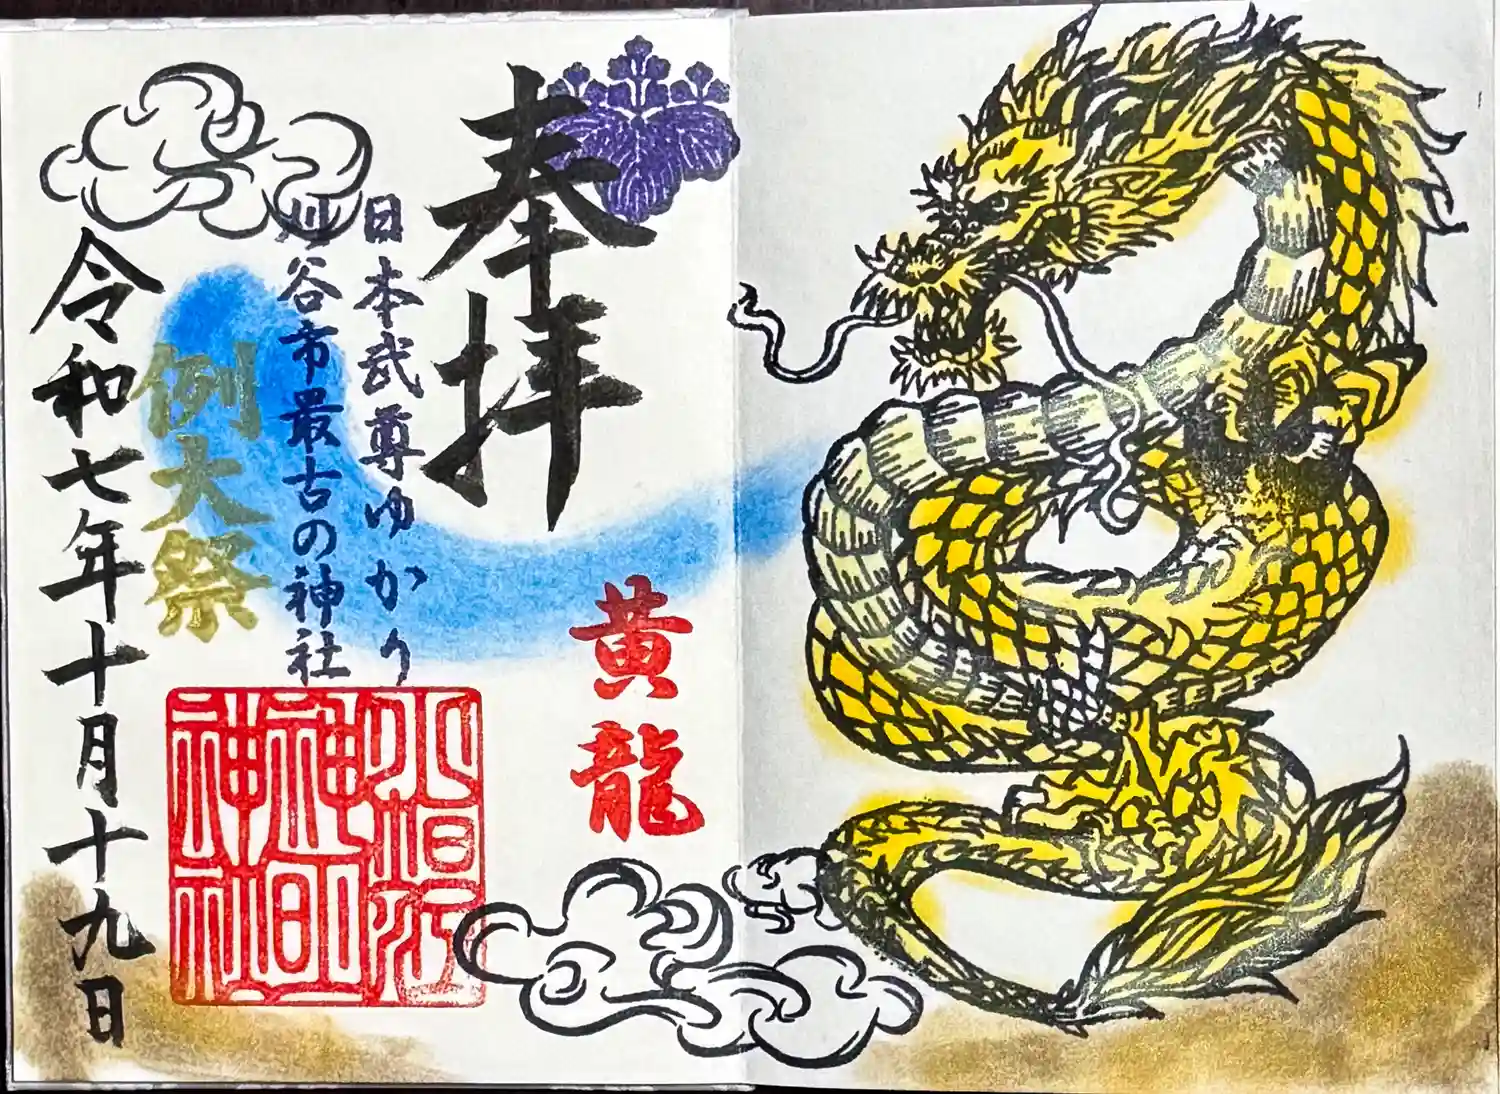 奉拝
黄龍
日本武尊ゆかり
刈谷市最古の神社
例大祭
令和七年十月十九日
小垣江
神明
神社